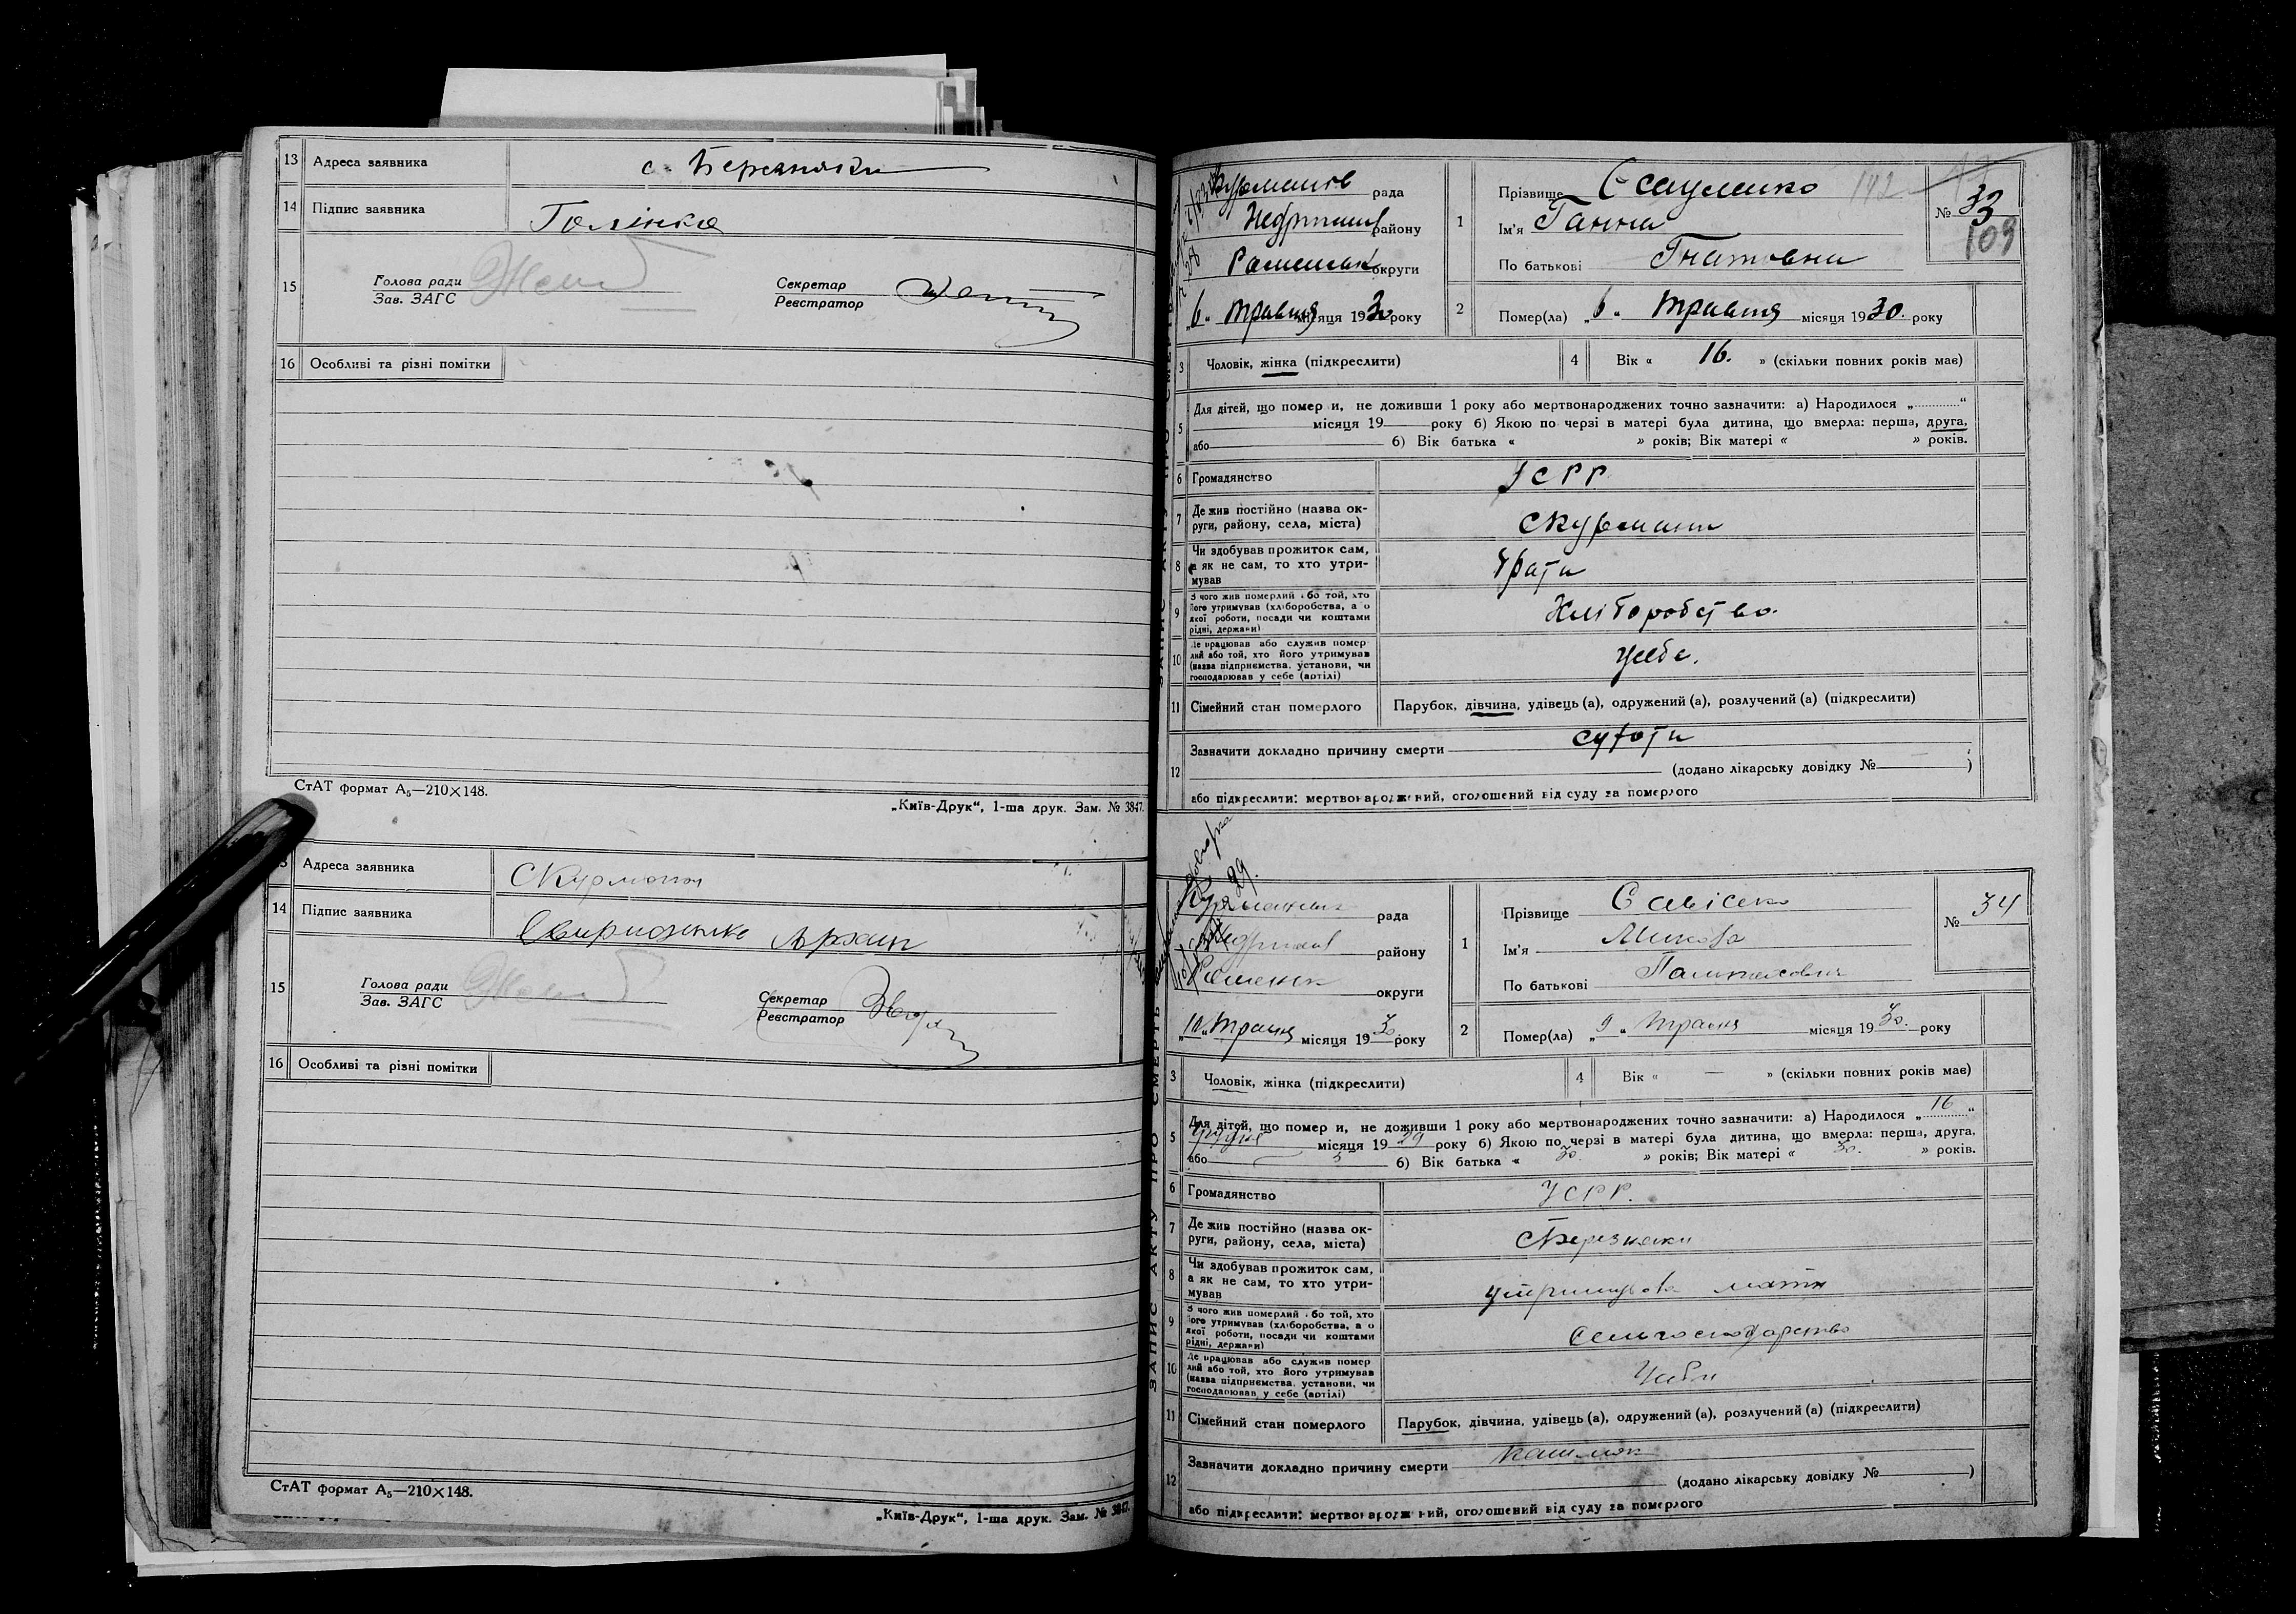 13 Адреса заявника с. Березняки
14 Підпис заявника Голінка
15 Голова ради
Зав. ЗАГС
Секретар
Реєстратор
16 Особливі та різні помітки
СтАТ формат А₅—210×148.
„Київ-Друк“, 1-ша друк. Зам. № 3847.
Адреса заявника с Курмани
14 Підпис заявника
15 Голова ради
Зав. ЗАГС
Секретар
Реєстратор
16 Особливі та різні помітки
СтАТ формат А₅—210×148.
„Київ-Друк“, 1-ша друк. Зам. № 3847.
ЗАПИС АКТУ ПРО СМЕРТЬ
Курманів рада
району
Роменськ округи
„6“ Травня місяця 1930 року
1 Прізвище Осауленко 142
Ім'я Ганна
По батькові Гнатовна
№ 33
109
2 Помер(ла) „6“ Травня місяця 1930. року
3 Чоловік, жінка (підкреслити)
4 Вік « 16. » (скільки повних років має)
5 Для дітей, що помер и, не доживши 1 року або мертвонароджених точно зазначити: а) Народилося „ “
місяця 19 року б) Якою по черзі в матері була дитина, що вмерла: перша, друга,
або б) Вік батька « » років; Вік матері « » років.
6 Громадянство УСРР
7 Де жив постійно (назва ок-
руги, району, села, міста) с Курмани
8 Чи здобував прожиток сам,
а як не сам, то хто утри-
мував
9 З чого жив померлий або той, хто
його утримував (хліборобства, а о
якої роботи, посади чи коштами
рідні, держави) Хліборобство.
10 Де працював або служив помер
лий або той, хто його утримував
(назва підприємства, установи, чи
господарював у себе (артілі) Усебе.
11 Сімейний стан померлого Парубок, дівчина, удівець (а), одружений (а), розлучений (а) (підкреслити)
12 Зазначити докладно причину смерти сухоти
(додано лікарську довідку № )
або підкреслити: мертвонароджений, оголошений від суду за померлого
ЗАПИС АКТУ ПРО СМЕРТЬ
рада
району
Роменск округи
„10“ Травня місяця 1930 року
1 Прізвище
Ім'я Микола
По батькові
№ 34
2 Помер(ла) „9“ Травня місяця 1930. року
3 Чоловік, жінка (підкреслити)
4 Вік « — » (скільки повних років має)
5 Для дітей, що помер и, не доживши 1 року або мертвонароджених точно зазначити: а) Народилося „16“
грудня місяця 1929 року б) Якою по черзі в матері була дитина, що вмерла: перша, друга,
або 3 б) Вік батька « 30. » років; Вік матері « 30. » років.
6 Громадянство УСРР.
7 Де жив постійно (назва ок-
руги, району, села, міста) с Березняки
8 Чи здобував прожиток сам,
а як не сам, то хто утри-
мував утримувала мати
9 З чого жив померлий або той, хто
його утримував (хліборобства, а о
якої роботи, посади чи коштами
рідні, держави)
10 Де працював або служив помер
лий або той, хто його утримував
(назва підприємства, установи, чи
господарював у себе (артілі) Усебе
11 Сімейний стан померлого Парубок, дівчина, удівець (а), одружений (а), розлучений (а) (підкреслити)
12 Зазначити докладно причину смерти кашлюк
(додано лікарську довідку № )
або підкреслити: мертвонароджений, оголошений від суду за померлого